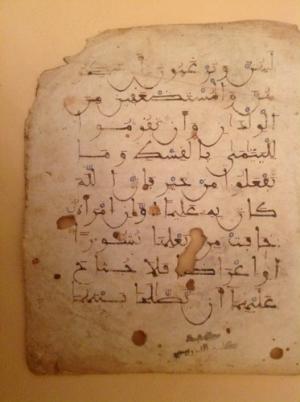 لهن وترغبون أن تنكحو
هن والمستضعفين من
الولدان وأن تقوموا
لليتمى بالقسط وما
تفعلوا من خير فإن الله
كان به عليما وإن امرأة
خافت من بعلها نشوزا
أو إعراضا فلا جناح
عليهما أن يصلحا بينهما